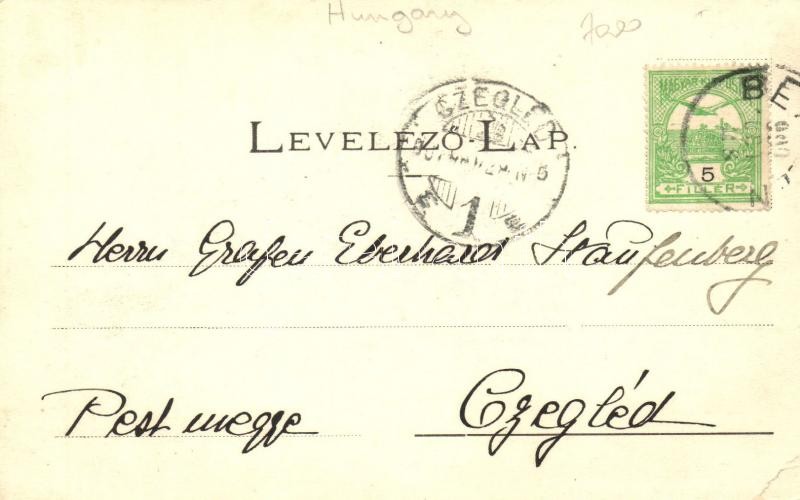 Hungary
CZEGLÉD
BE
MAGYAR KIR. POSTA
LEVELEZŐ-LAP.
5
FILLÉR
1
Herrn Grafen Eberhard Stauffenberg
Pest megye
Czegléd